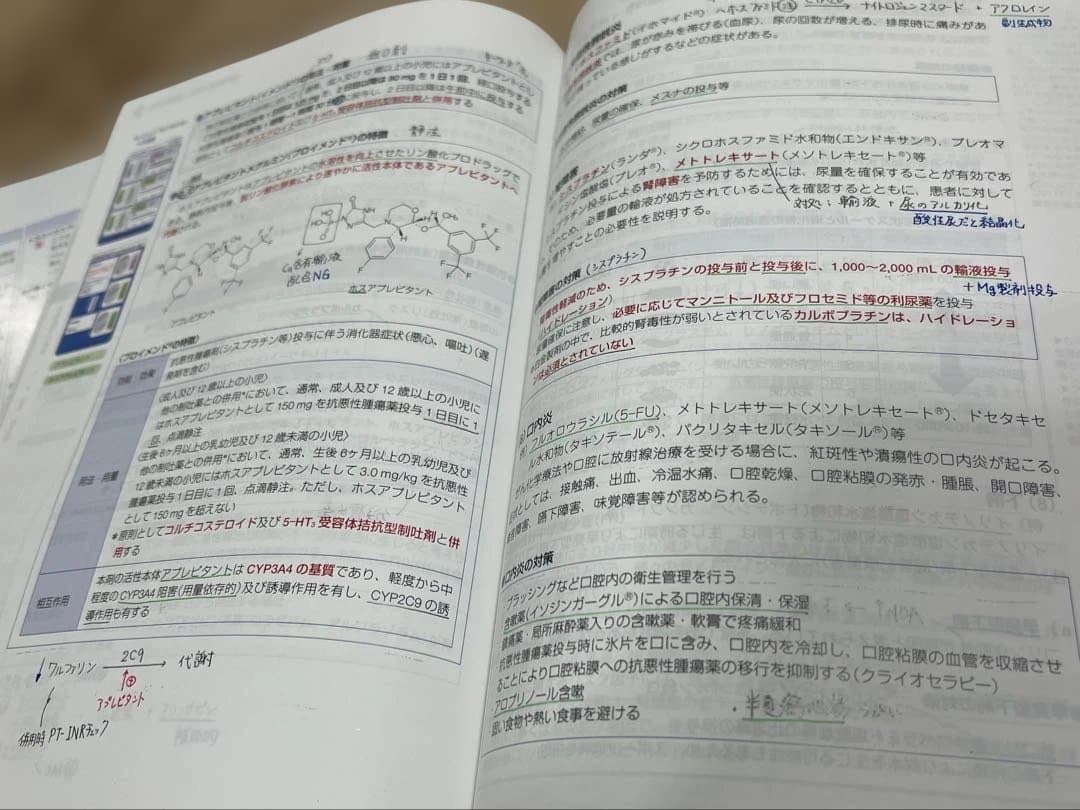 経口剤
アプレピタント(イメンド®)の用法・用量
成人及び12歳以上の小児にはアプレピタントとし
mgを1日1回、経口投与する
2日目以降は午前中に投与する
受容体拮抗型制吐剤と併用する
静注
ホスアプレピタントメグルミン(プロイメンド®)の特徴
ホスアプレピタントはアプレピタントの水溶性を向上させたリン酸化プロドラッグで
脱リン酸化酵素により速やかに活性本体であるアプレピタントへ
代謝される
Ca含有輸液
配合NG
アプレピタント
ホスアプレピタント
〈プロイメンド®の特徴〉
効能・効果
抗悪性腫瘍剤(シスプラチン等)投与に伴う消化器症状(悪心、嘔吐)(遅
発期を含む)
用法・用量
〈成人及び12歳以上の小児〉
他の制吐薬との併用*において、通常、成人及び12歳以上の小児に
はホスアプレピタントとして150mgを抗悪性腫瘍薬投与1日目に1
回、点滴静注
〈生後6ヶ月以上の乳幼児及び12歳未満の小児〉
他の制吐薬との併用*において、通常、生後6ヶ月以上の乳幼児及び
12歳未満の小児にはホスアプレピタントとして3.0mg/kgを抗悪性
腫瘍薬投与1日目に1回、点滴静注。ただし、ホスアプレピタント
として150mgを超えない
*原則としてコルチコステロイド及び5-HT₃受容体拮抗型制吐剤と併
用する
相互作用
本剤の活性本体アプレピタントはCYP3A4の基質であり、軽度から中
程度のCYP3A4阻害(用量依存的)及び誘導作用を有し、CYP2C9の誘
導作用も有する
ワルファリン 2C9 → 代謝
アプレピタント
併用時 PT-INRチェック
ナイトロジェンマスタード + アクロレイン
副生成物
(イホマイド®)
では、尿が赤みを帯びる(血尿)、尿の回数が増える、排尿時に痛みがあ
っている感じがするなどの症状がある。
炎の対策
尿量の確保、メスナの投与等
シスプラチン(ランダ®)、シクロホスファミド水和物(エンドキサン®)、ブレオマ
シン塩酸塩(ブレオ®)、メトトレキサート(メソトレキセート®)等
プラチン投与による腎障害を予防するためには、尿量を確保することが有効であ
ため、必要量の輸液が処方されていることを確認するとともに、患者に対して
増やすことの必要性を説明する。
対処い 輸液 + 尿のアルカリ化
酸性尿だと結晶化
の対策(シスプラチン)
腎毒性軽減のため、シスプラチンの投与前と投与後に、1,000〜2,000mLの輸液投与
+ Mg製剤投与
(ハイドレーション)
尿量確保に注意し、必要に応じてマンニトール及びフロセミド等の利尿薬を投与
白金製剤の中で、比較的腎毒性が弱いとされているカルボプラチンは、ハイドレーショ
ンは必須とされていない
口内炎
フルオロウラシル(5-FU)、メトトレキサート(メソトレキセート®)、ドセタキセ
ル水和物(タキソテール®)、パクリタキセル(タキソール®)等
がん化学療法や口腔に放射線治療を受ける場合に、紅斑性や潰瘍性の口内炎が起こる。
症状としては、接触痛、出血、冷温水痛、口腔乾燥、口腔粘膜の発赤・腫脹、開口障害、
障害、嚥下障害、味覚障害等が認められる。
口内炎の対策
ブラッシングなど口腔内の衛生管理を行う
含嗽薬(イソジンガーグル®)による口腔内保清・保湿
鎮痛薬・局所麻酔薬入りの含嗽薬・軟膏で疼痛緩和
抗悪性腫瘍薬投与時に氷片を口に含み、口腔内を冷却し、口腔粘膜の血管を収縮させ
ることにより口腔粘膜への抗悪性腫瘍薬の移行を抑制する(クライオセラピー)
アロプリノール含嗽
固い食物や熱い食事を避ける